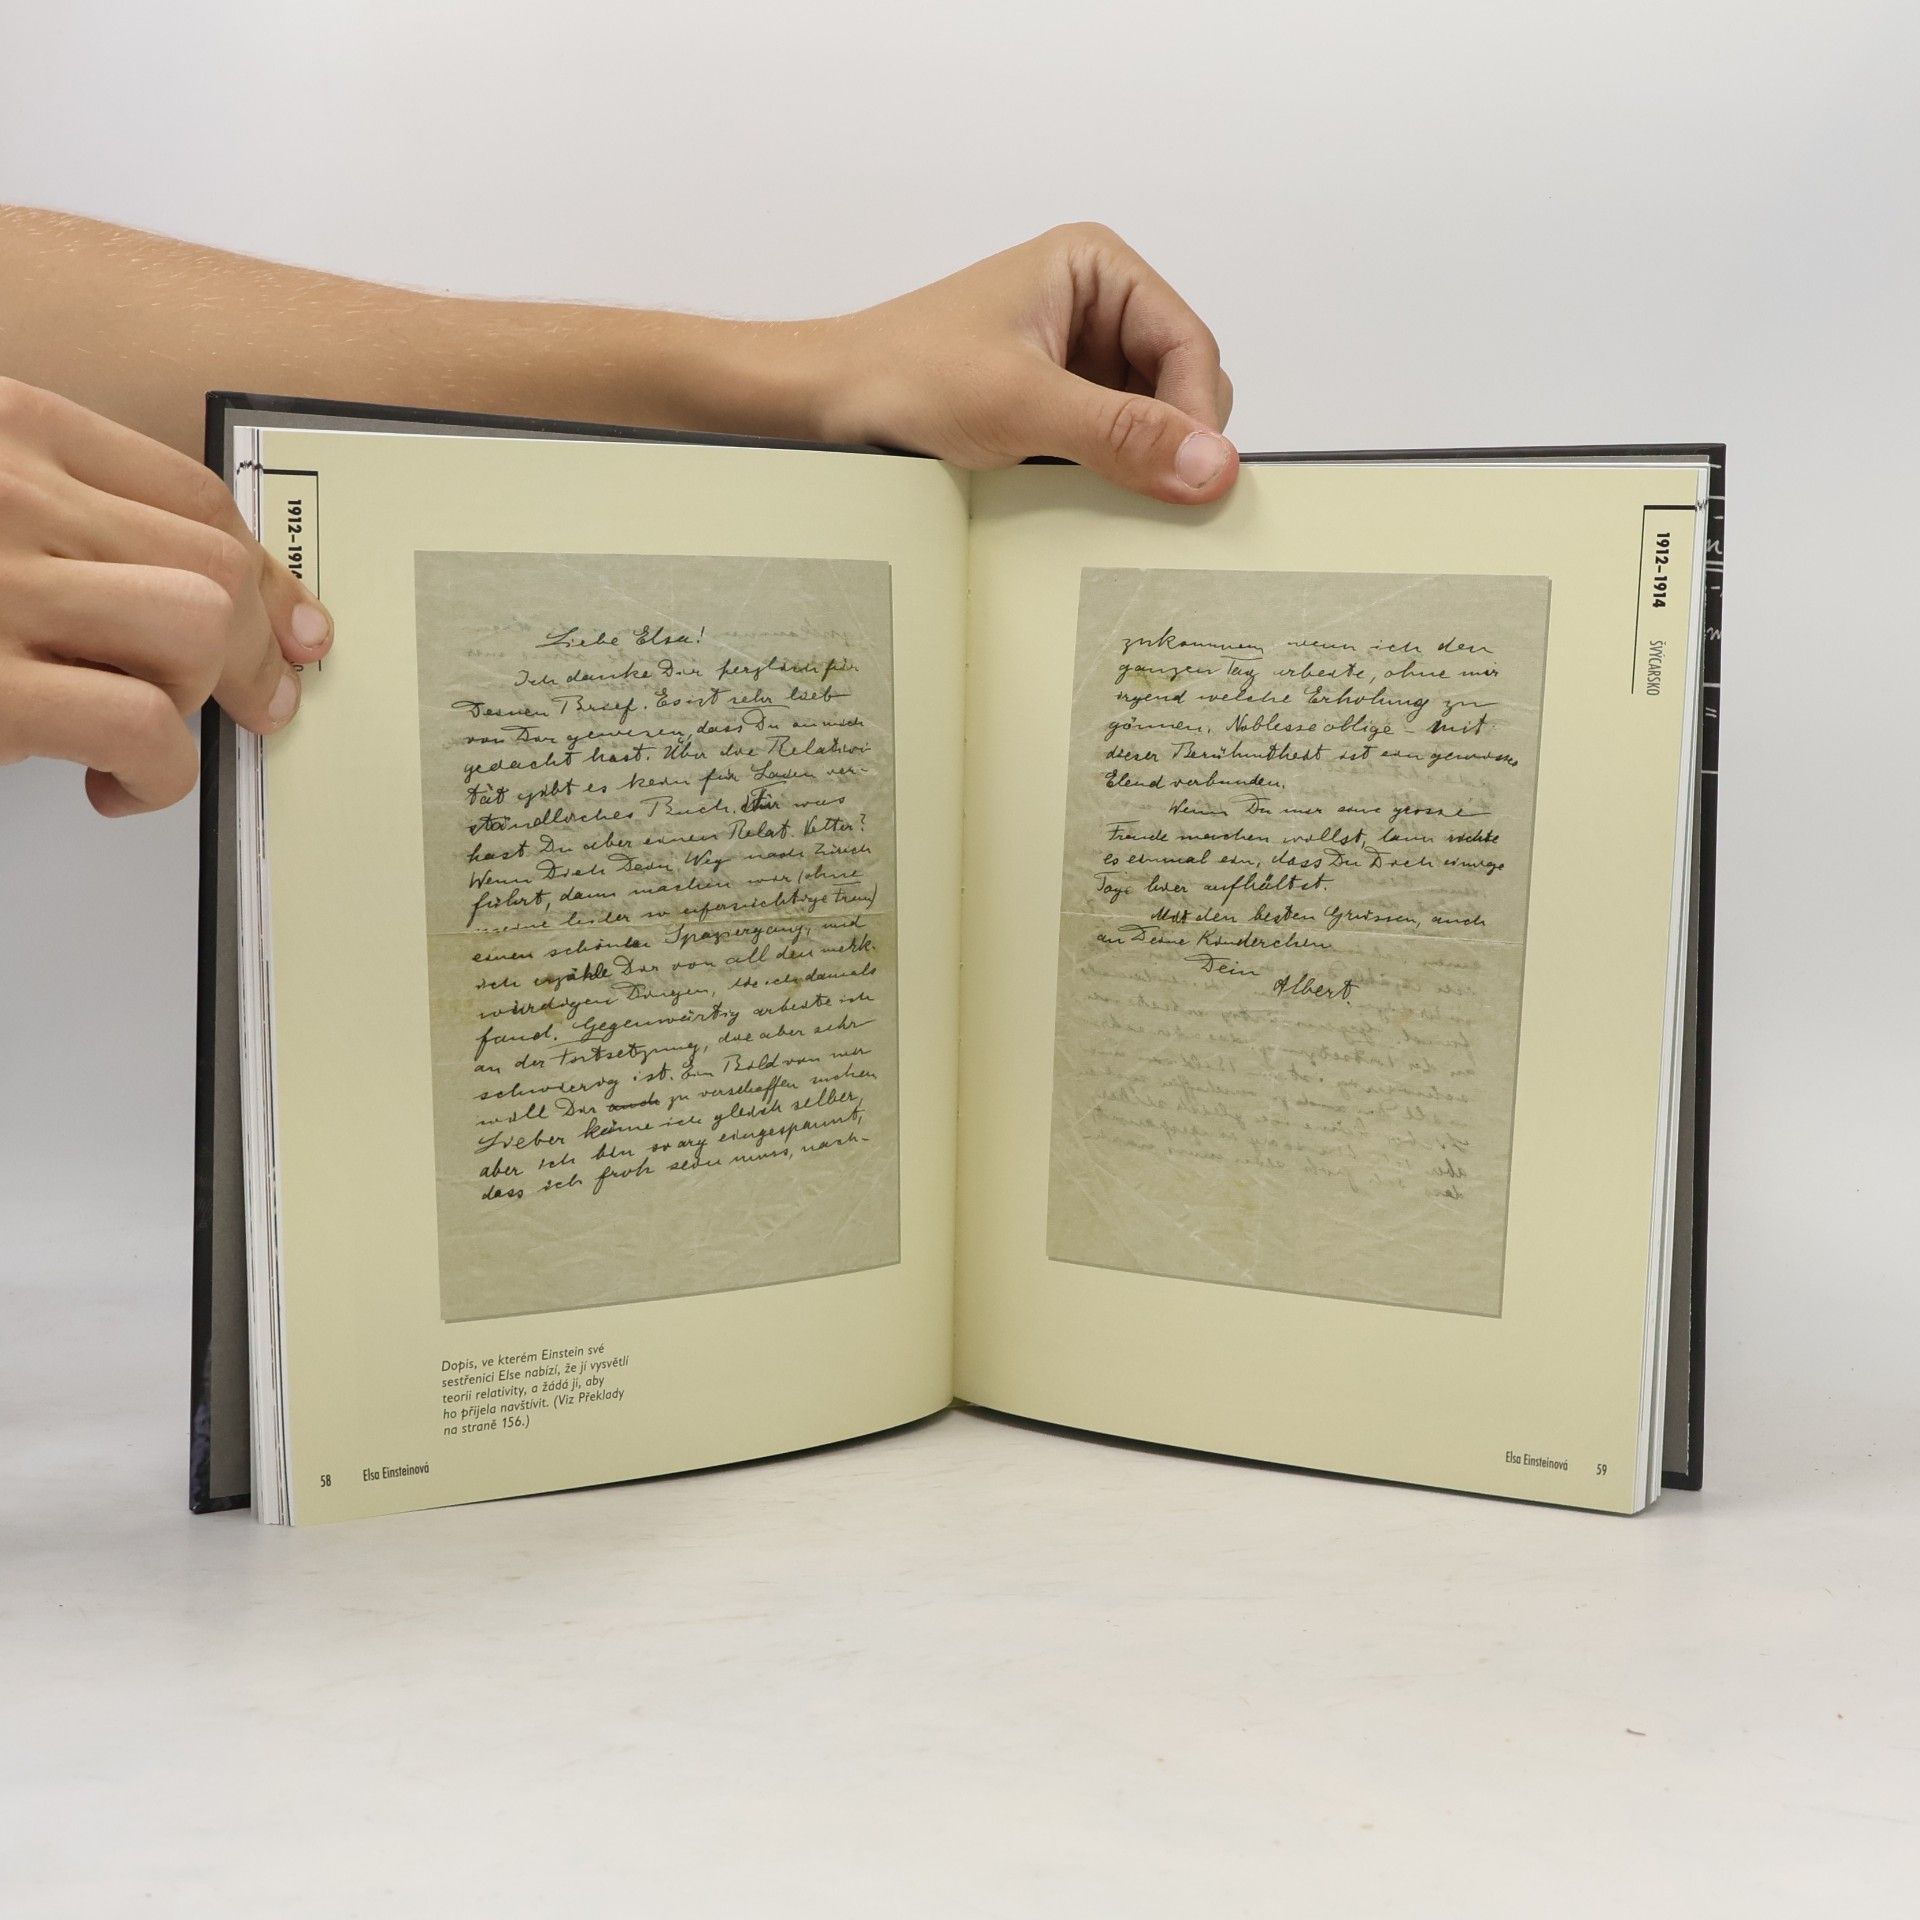 1912–1914
Liebe Elsa!
Ich danke Dir herzlich für
Deinen Brief. Es ist sehr lieb
von Dir gewesen, dass Du an mich
gedacht hast. Über die Relativi-
tät gibt es kein für Laien ver-
ständliches Buch. Für was
hast Du aber einen Relat. Vetter?
Wenn Dich Dein Weg nach Zürich
führt, dann machen wir (ohne
meine leider so eifersüchtige Frau)
einen schönen Spaziergang, und
ich erzähle Dir von all den merk-
würdigen Dingen, die ich damals
fand. Gegenwärtig arbeite ich
an der Fortsetzung, die aber sehr
schwierig ist. Ein Bild von mir
will Dir auch zu verschaffen suchen
Lieber käme ich gleich selber,
aber ich bin so arg eingespannt,
dass ich froh sein muss, nach-
Dopis, ve kterém Einstein své
sestřenici Else nabízí, že jí vysvětlí
teorii relativity, a žádá ji, aby
ho přijela navštívit. (Viz Překlady
na straně 156.)
58 Elsa Einsteinová
1912–1914 ŠVÝCARSKO
zukommen wenn ich den
ganzen Tag arbeite, ohne mir
irgend welche Erholung zu
gönnen. Noblesse oblige – mit
dieser Berühmtheit ist ein gewisses
Elend verbunden.
Wenn Du mir eine grosse
Freude machen willst, dann richte
es einmal ein, dass Du Dich einige
Tage hier aufhältst.
Mit den besten Grüssen, auch
an Deine Kinderchen
Dein
Albert.
Elsa Einsteinová 59